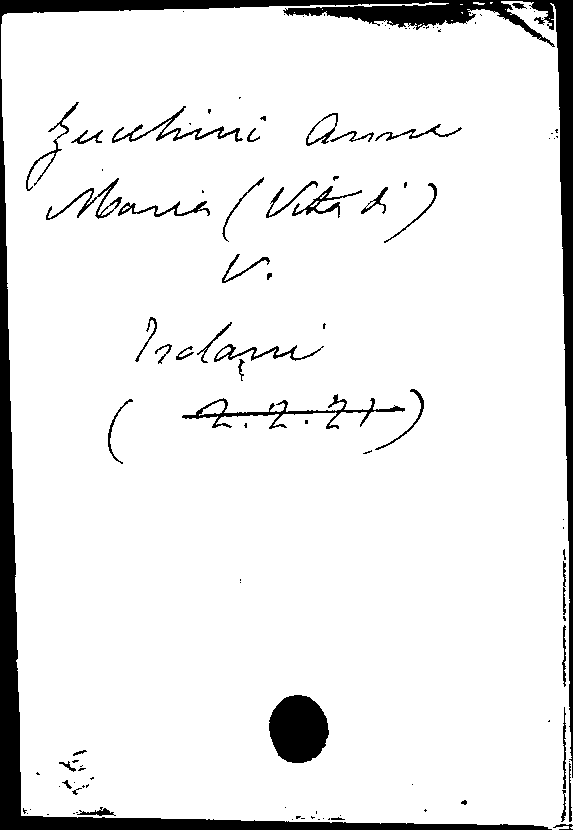 Zucchini Anna
Maria (Vita di)
V.
Isolani
( 2.2.21 )